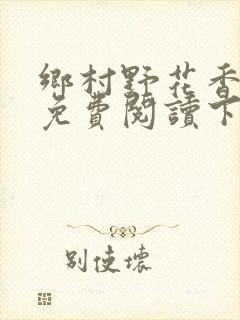 鄉村野花香
免費閱讀下
別使壞